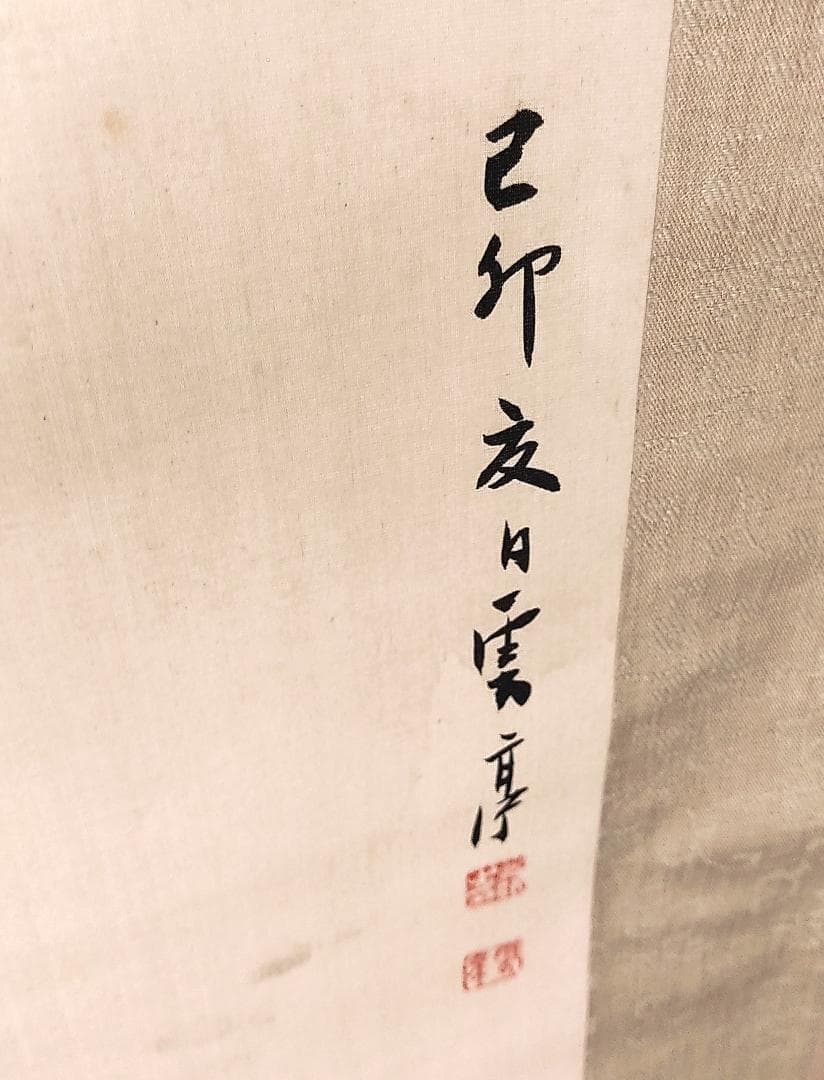 己卯夏日雲亭